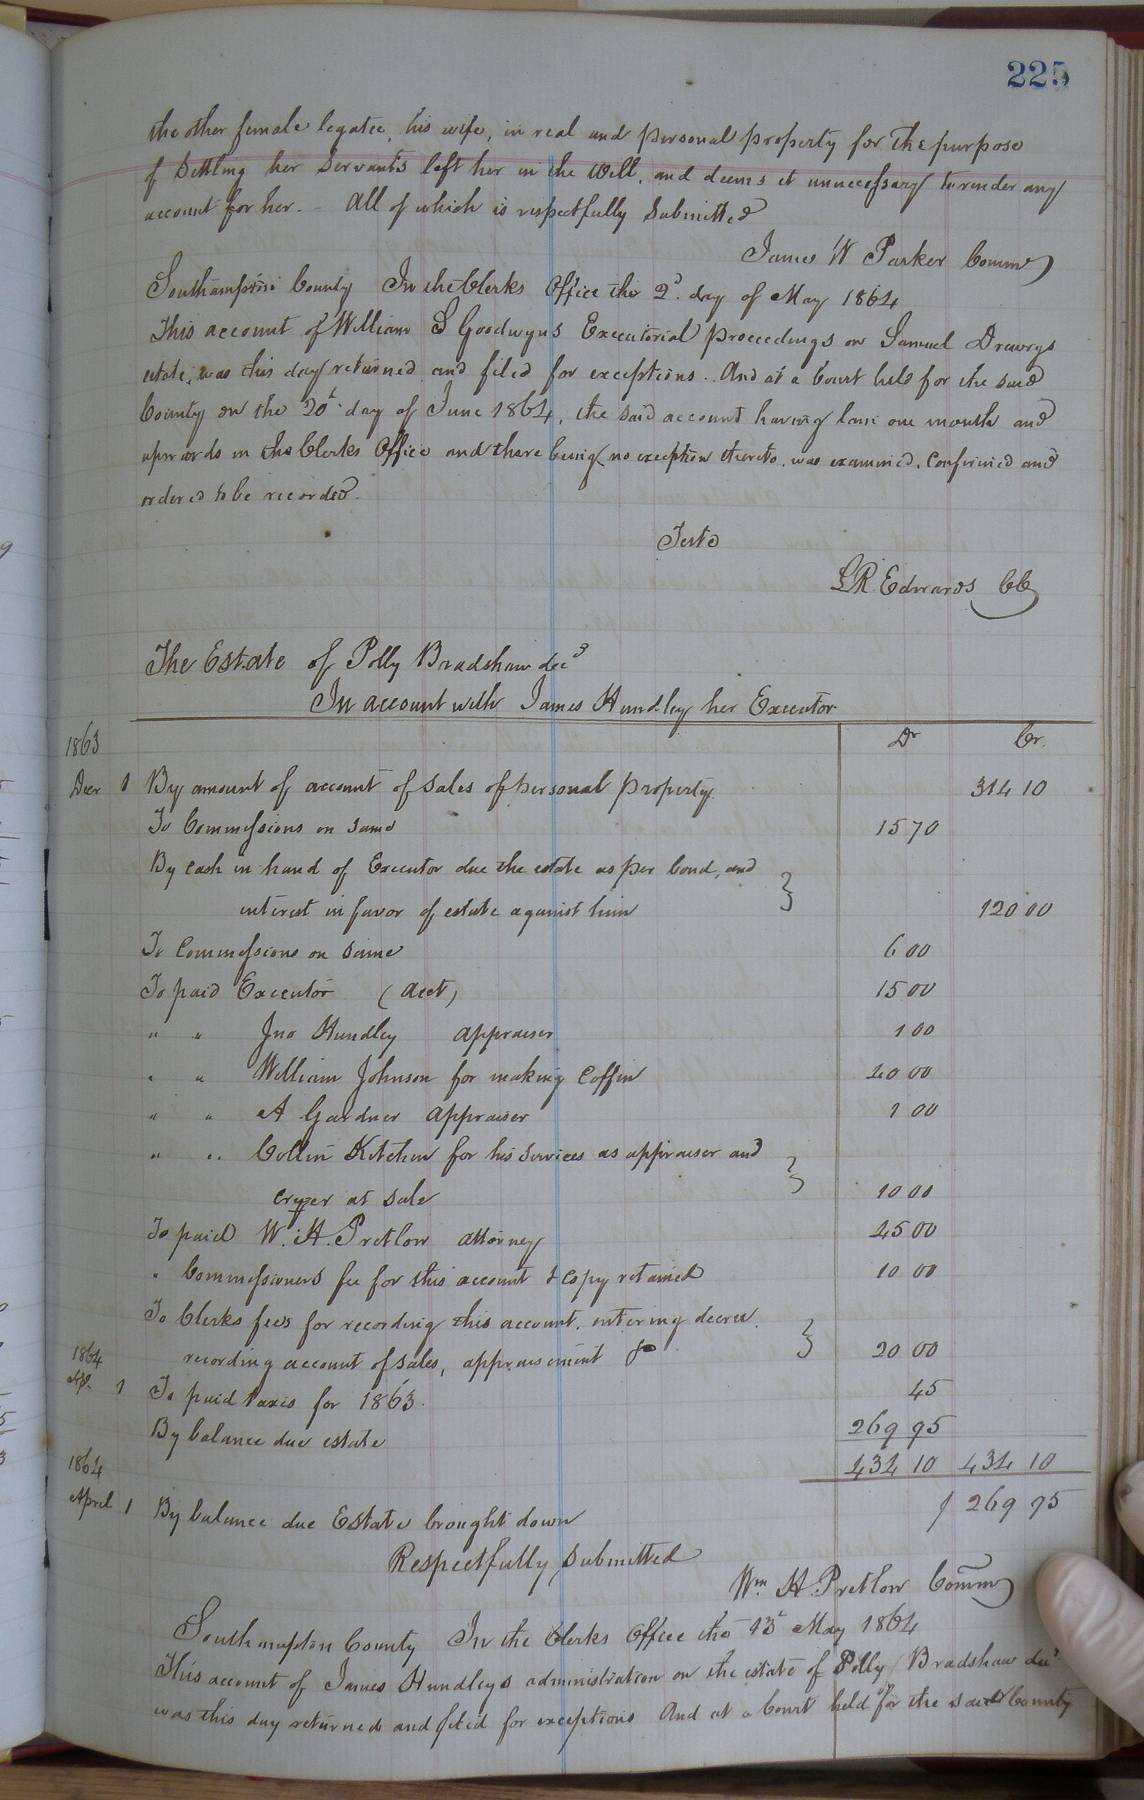 225
the other female legatee, his wife, in real and personal property for the purpose
of Settling her Servants left her in the Will, and deems it unnecessary to render any
account for her. - All of which is respectfully Submitted
James W Parker Commr
Southampton County In the Clerks Office the 2d. day of May 1864
This account of William S Goodwyns Executorial Proceedings on Samuel Drewrys
estate, was this day returned and filed for exceptions. And at a Court held for the said
County on the 20t. day of June 1864, the said account having lain one month and
upwards in the Clerks Office and there being no exception thereto, was examined, Confirmed and
ordered to be recorded.
Teste
L R Edwards CC
The Estate of Polly Bradshaw decd
In account with James Hundley her Executor
1863 Dr Cr.
Decr 1 By amount of account of Sales of Personal Property 314 10
To Commissions on same 15 70
By cash in hand of Executor due the estate as per bond, and }
interest in favor of estate against him 120 00
To Commissions on same 6 00
To paid Executor (acct) 15 00
" " Jno Hundley appraiser 1 00
" " William Johnson for making Coffin 40 00
" " A Gardner appraiser 1 00
" " Collin Kitchen for his services as appraiser and }
cryer at sale 10 00
To paid W. H. Pretlow attorney 45 00
" Commissioners fee for this account & copy retained 10 00
To Clerks fees for recording this account, entering decree. }
1864 recording account of sales, appraisement &c 20 00
Ap. 1 To paid taxes for 1863. 45
By balance due estate 269 95
1864 434 10 434 10
April 1 By balance due Estate brought down $ 269 95
Respectfully Submitted
Wm H. Pretlow Commr
Southampton County In the Clerks Office the 13t May 1864
This account of James Hundleys administration on the estate of Polly Bradshaw decd
was this day returned and filed for exceptions And at a Court held for the said County